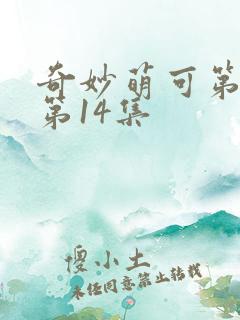 奇妙萌可第
第14集
傻小土
未经同意禁止转载